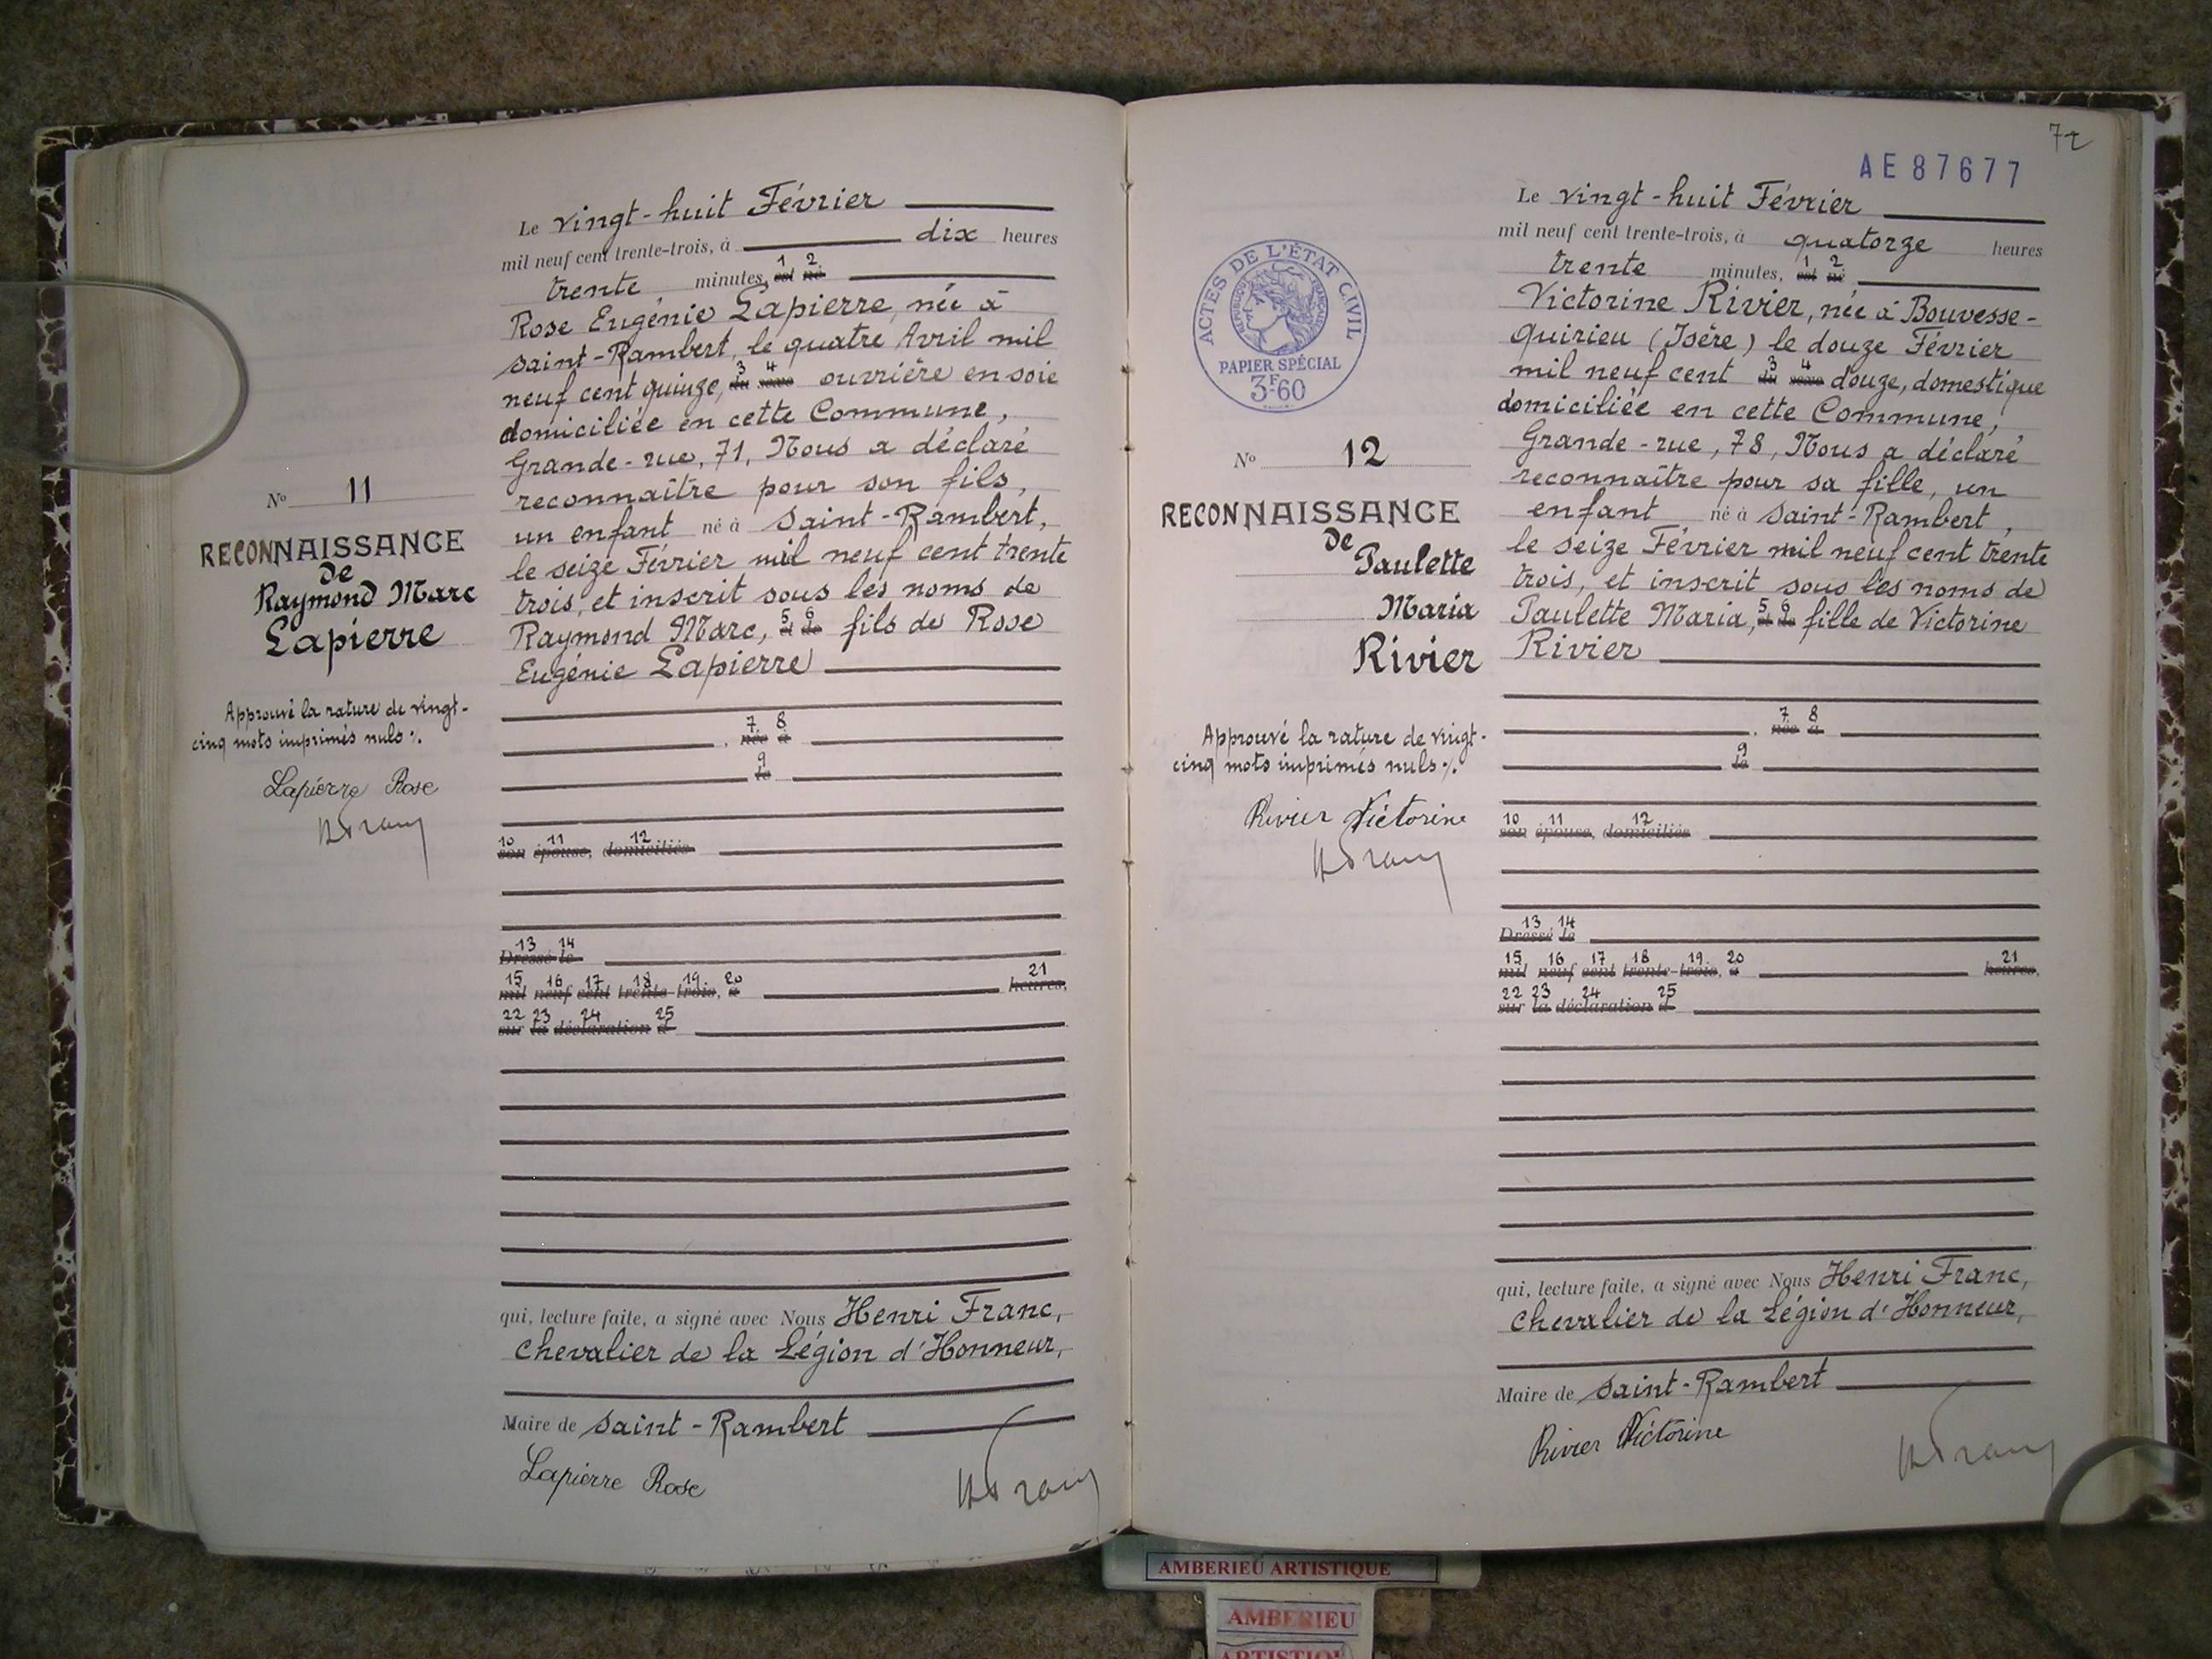 Le vingt-huit Février
mil neuf cent trente-trois, à dix heures
trente minutes, 1 est 2 né
Rose Eugénie Lapierre, née à
Saint-Rambert, le quatre Avril mil
neuf cent quinze, 3 du 4 sexe ouvrière en soie
domiciliée en cette Commune,
Grande-rue, 71, Nous a déclaré
reconnaître pour son fils,
un enfant né à Saint-Rambert,
le seize Février mil neuf cent trente
trois, et inscrit sous les noms de
Raymond Marc, 5 et 6 de fils de Rose
Eugénie Lapierre
7 née 8 à
9 le
10 son 11 épouse, 12 domiciliés
13 Dressé 14 le
15 mil 16 neuf 17 cent 18 trente- 19 trois, 20 à 21 heures,
22 sur 23 la 24 déclaration 25 d
qui, lecture faite, a signé avec Nous Henri Franc,
Chevalier de la Légion d'Honneur,
Maire de Saint-Rambert
Lapierre Rose
No 11
RECONNAISSANCE
de
Raymond Marc
Lapierre
Approuvé la rature de vingt-
cinq mots imprimés nuls ./.
Lapierre Rose
72
AE87677
ACTES DE L'ÉTAT CIVIL
RÉPUBLIQUE FRANÇAISE
PAPIER SPÉCIAL
3F60
No 12
RECONNAISSANCE
de
Paulette
Maria
Rivier
Approuvé la rature de vingt-
cinq mots imprimés nuls ./.
Rivier Victorine
Le vingt-huit Février
mil neuf cent trente-trois, à quatorze heures
trente minutes, 1 est 2 né
Victorine Rivier, née à Bouvesse-
Quirieu (Isère) le douze Février
mil neuf cent 3 du 4 sexe douze, domestique
domiciliée en cette Commune,
Grande-rue, 78, Nous a déclaré
reconnaître pour sa fille, un
enfant né à Saint-Rambert,
le seize Février mil neuf cent trente
trois, et inscrit sous les noms de
Paulette Maria, 5 et 6 de fille de Victorine
Rivier
7 née 8 à
9 le
10 son 11 épouse, 12 domiciliés
13 Dressé 14 le
15 mil 16 neuf 17 cent 18 trente- 19 trois, 20 à 21 heures,
22 sur 23 la 24 déclaration 25 d
qui, lecture faite, a signé avec Nous Henri Franc,
Chevalier de la Légion d'Honneur,
Maire de Saint-Rambert
Rivier Victorine
AMBERIEU ARTISTIQUE
AMBERIEU